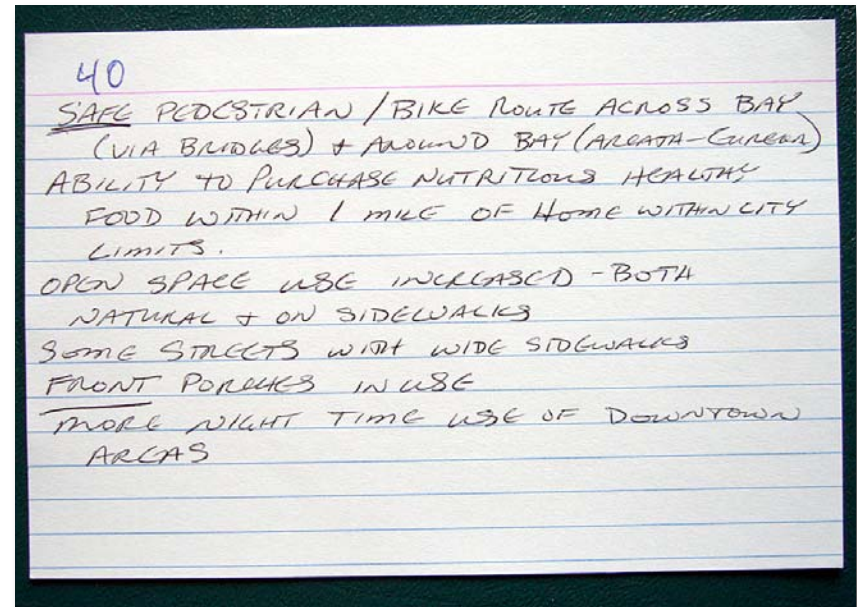 40
SAFE PEDESTRIAN / BIKE ROUTE ACROSS BAY
(VIA BRIDGES) + AROUND BAY (ARCATA-EUREKA)
ABILITY TO PURCHASE NUTRITIOUS HEALTHY
FOOD WITHIN 1 MILE OF HOME WITHIN CITY
LIMITS.
OPEN SPACE USE INCREASED - BOTH
NATURAL + ON SIDEWALKS
SOME STREETS WITH WIDE SIDEWALKS
FRONT PORCHES IN USE
MORE NIGHT TIME USE OF DOWNTOWN
AREAS